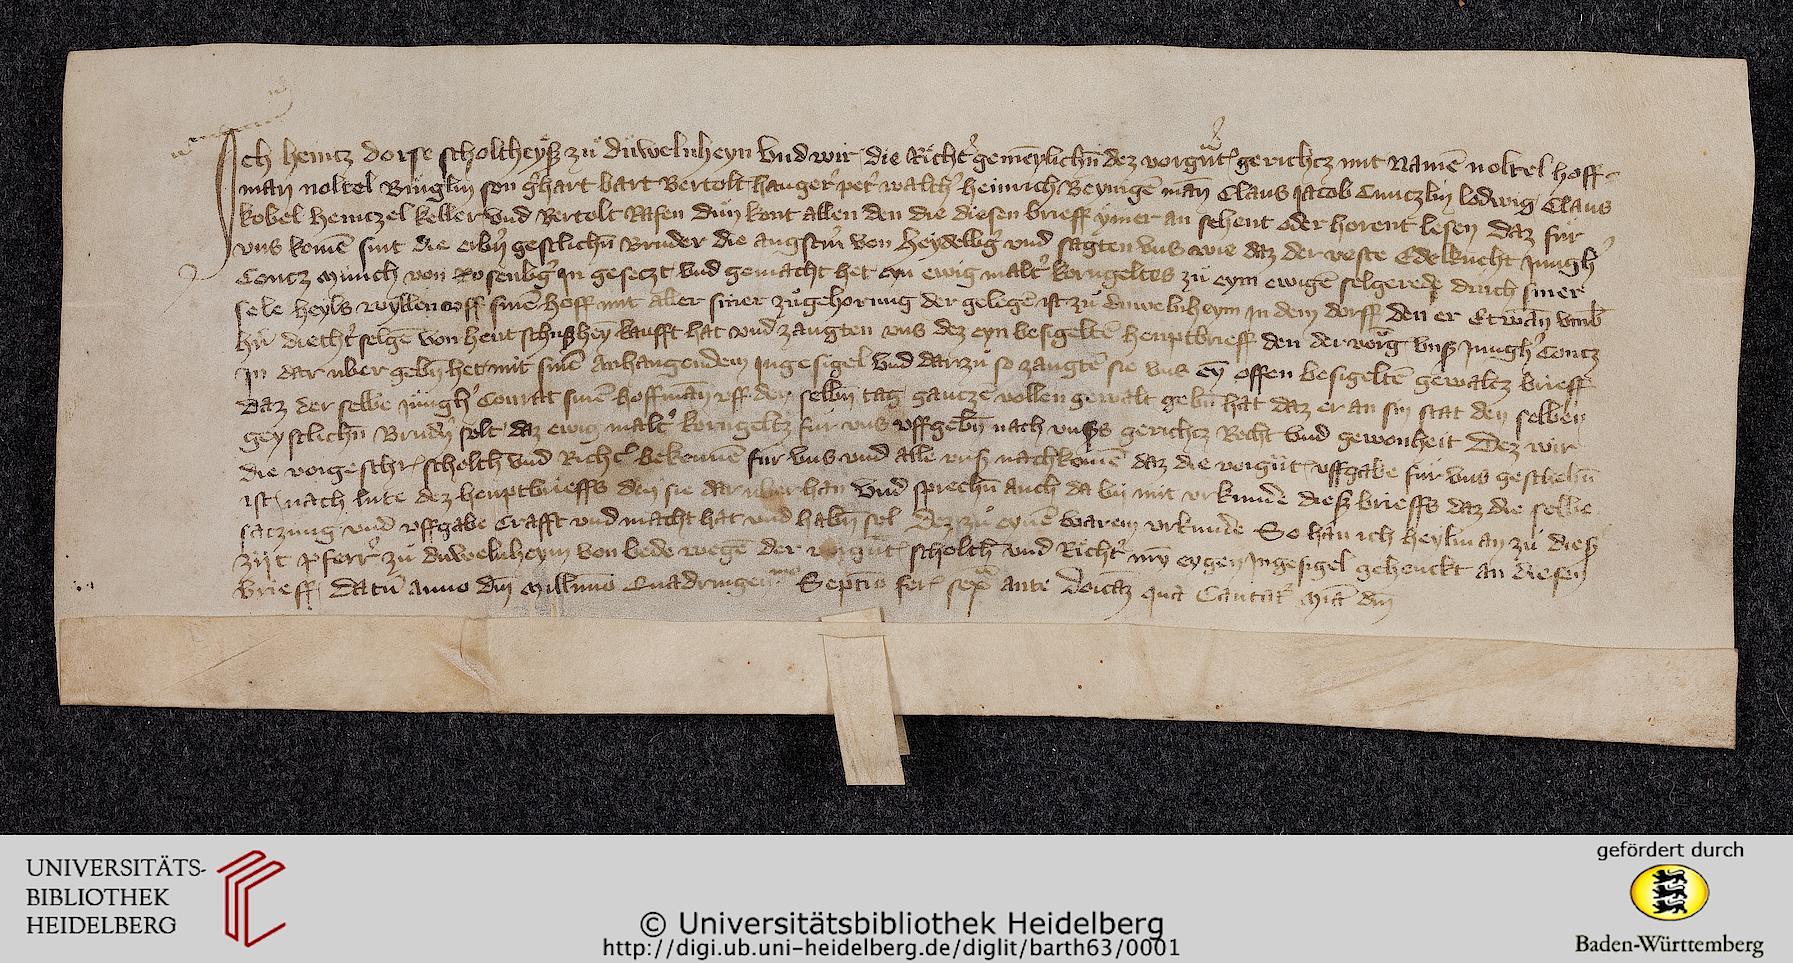 Ich heintz dorse scholtheyß zů důwelnheyn vnd wir die Richt' gemēylichn̄ dez vorgn̄t gerichtz mit Namē noltel hoff-
man noltel Brüglin son g'hart bart Bertolt hauger pet' walth' heinrich Beyngē man Claus Jacob Cuntzlin lodwig Claus
kobel heintzel keller vnd Bertolt Rafen důn kont allen den die diesen brieff ymer an sehent oder horent lesen daz für
vns komē sint die erbn̄ geistlichn̄ Bruder die augstin' von heydelbg' vnd sagten vns wie daz der veste Edelknecht Jungh'
Contz Münich von Rosenbg' Jn gesetzt vnd gemacht het eyn ewig malt' korngeltes zů eym ewigē selgerede durch siner
sele heyls wyllen vff sinē hoff mit aller siner zůgehorung der gelegē ist zů důwelnheym Jn dem dorff den er Etwan vmb
selgē von hent kaufft hat vnd zaugten vns dez eyn besigeltē heuptbrieff den der vorg vnß Jungh' Contz
Jn dar uber gebn̄ het mit sinē anhangendem Jngesigel vnd darzů so zaugtē sie vns eȳ offen besigeltē gewaltz brieff
daz der selbe Jungh' Conrat sinē hoffman vff den selbn̄ tag gantzē vollen gewalt gebn̄ hat daz er an sin stat den selben
geystlichn̄ Brudn̄ solt daz ewig malt' korngeltz für vns vffgebn̄ nach vnßs gerichtz Recht vnd gewonheit Dez wir
die vorgeschr scholth vnd Richt' bekennē für vns vnd alle vnß nachkomē daz die vorgn̄t vffgabe für vns geschehn̄
ist nach lute dez heuptbrieffs den sie dar uber han vnd sprechn̄ auch da by mit vrkunde dieß brieffs daz die selbe
satzung vnd vffgabe Crafft vnd macht hat vnd habn̄ sol Dez zů eynē warem vrkunde So han ich heylman zů dieß
zijt pferr' zů důwelnheym von bede wegē der vorgn̄t scholth vnd Richt' mȳ eygen Jngesigel gehenckt an diesen
brieff Datū anno dn̄i Millīmo Quadringenmo Septīo fer sexta ante Doīcaz qua Cantat' Mīa dn̄i
UNIVERSITÄTS-
BIBLIOTHEK
HEIDELBERG
© Universitätsbibliothek Heidelberg
http://digi.ub.uni-heidelberg.de/diglit/barth63/0001
gefördert durch
Baden-Württemberg